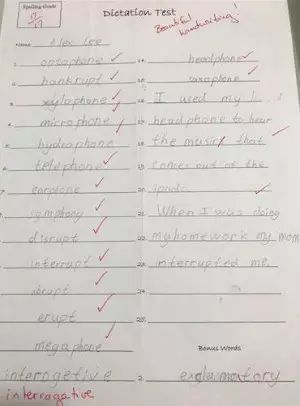 Spelling Grade
Dictation Test
Beautiful
handwriting!
17
Name: Alex Lee
1. optophone
14. headphone
2. bankrupt
15. saxophone
3. xylophone
16. I used my
4. microphone
17. headphone to hear
5. hydrophone
18. the music that
6. telephone
19. comes out of the
7. earphone
20. ipods.
8. symphony
21. When I was doing
disrupt
22. my homework my mom
interrupt
23. interrupted me.
abrupt
24.
erupt
25.
megaphone
Bonus Words
interrogetive
2. exclamatory
interrogative